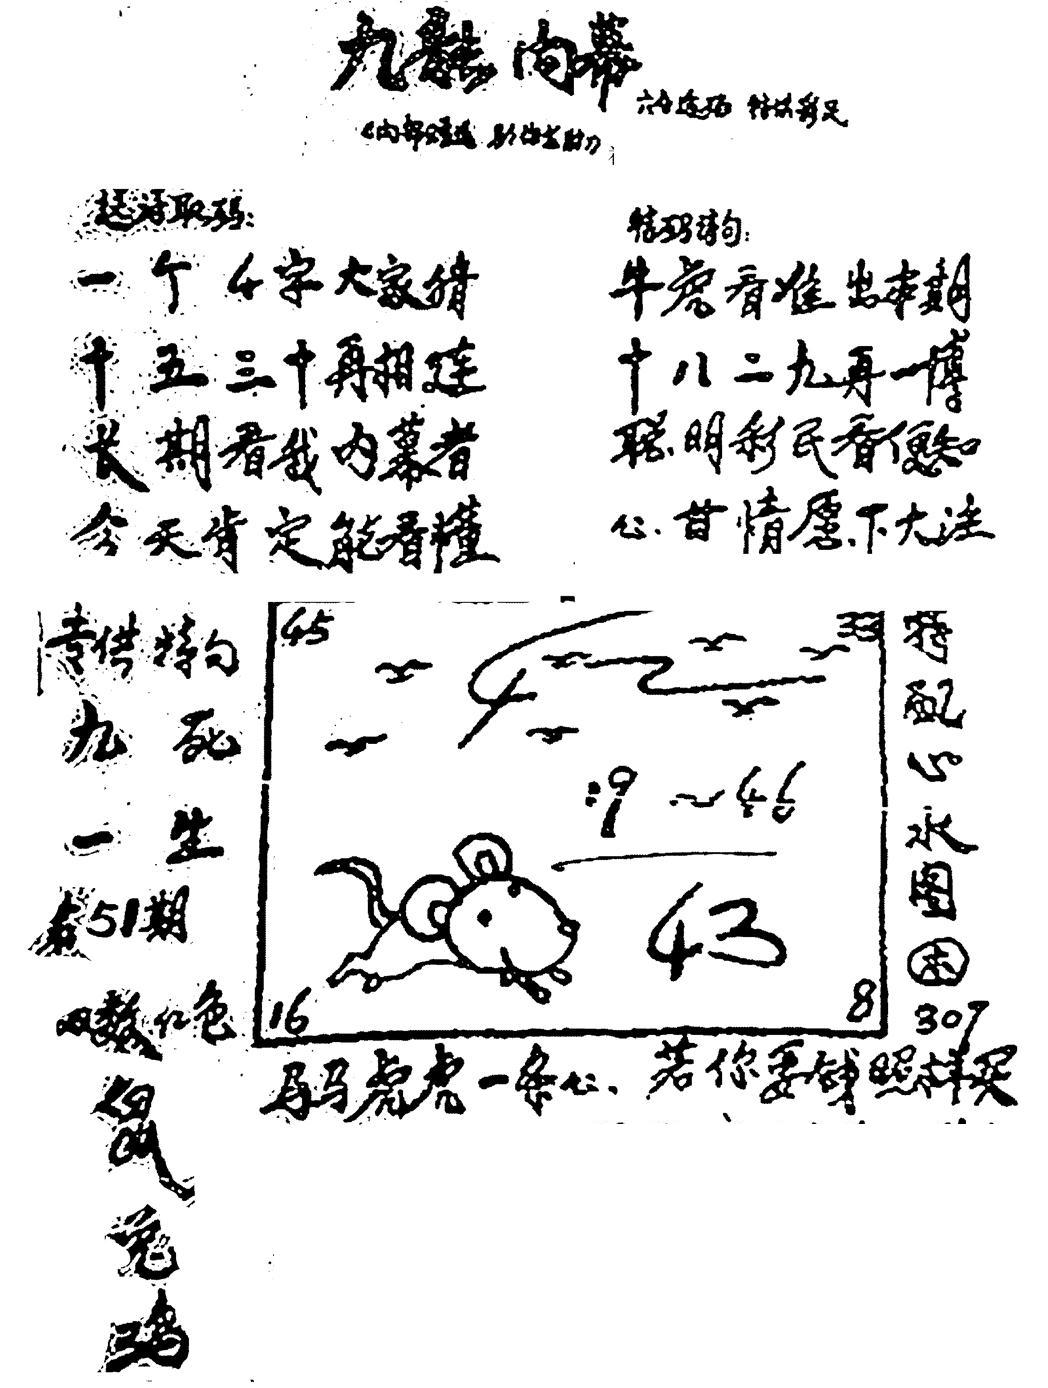 九龍内幕
特码诗句:
一个4字大家猜
牛虎看准出本期
十五三十再相连
十八二九再一博
长期看我内幕者
聪明彩民看便知
今天肯定能看懂
心甘情愿下大注
专供特句
九死
一生
51期
45
33
:9~46
43
16
8
特配心水图
307
马马虎虎一条心、若你要钱照样买
鼠
兔
鸡